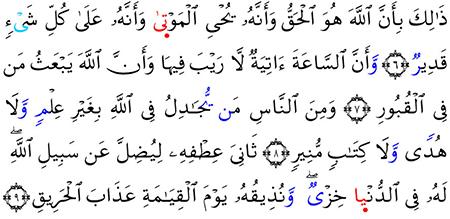 ذَٰلِكَ بِأَنَّ ٱللَّهَ هُوَ ٱلْحَقُّ وَأَنَّهُۥ يُحْىِ ٱلْمَوْتَىٰ وَأَنَّهُۥ عَلَىٰ كُلِّ شَىْءٍ
قَدِيرٌ ﴿٦﴾ وَأَنَّ ٱلسَّاعَةَ ءَاتِيَةٌ لَّا رَيْبَ فِيهَا وَأَنَّ ٱللَّهَ يَبْعَثُ مَن
فِى ٱلْقُبُورِ ﴿٧﴾ وَمِنَ ٱلنَّاسِ مَن يُجَٰدِلُ فِى ٱللَّهِ بِغَيْرِ عِلْمٍ وَلَا
هُدًى وَلَا كِتَٰبٍ مُّنِيرٍ ﴿٨﴾ ثَانِىَ عِطْفِهِۦ لِيُضِلَّ عَن سَبِيلِ ٱللَّهِ ۖ
لَهُۥ فِى ٱلدُّنْيَا خِزْىٌ ۖ وَنُذِيقُهُۥ يَوْمَ ٱلْقِيَٰمَةِ عَذَابَ ٱلْحَرِيقِ ﴿٩﴾